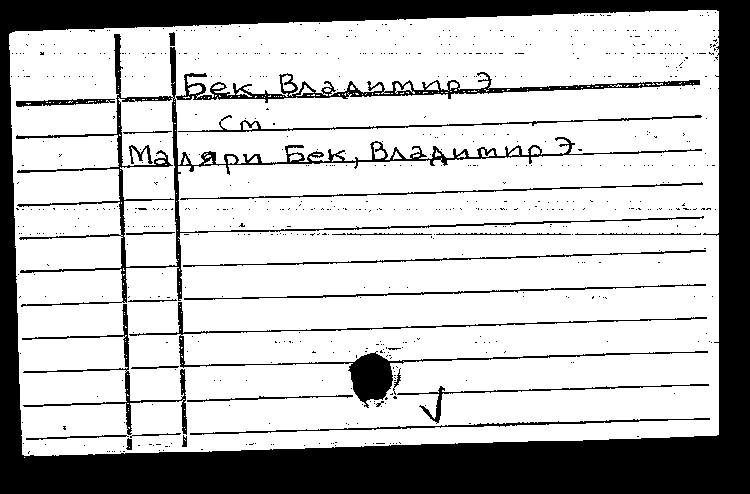 Бек, Владимир Э
См.
Маляри Бек, Владимир Э.